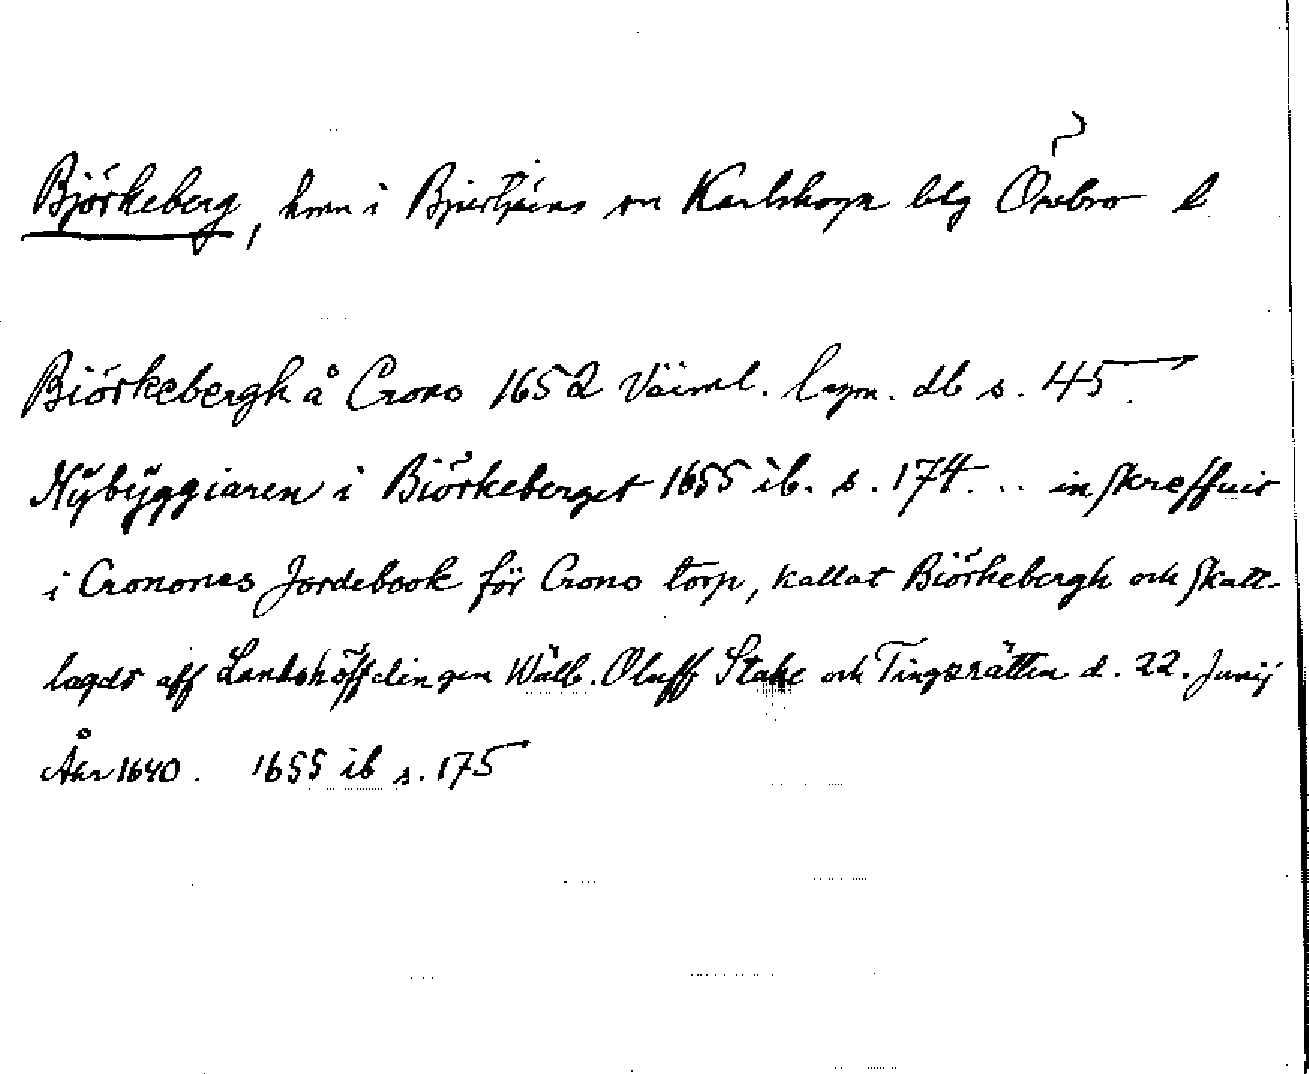 Björkeberg, hmn i Bjurtjärns sn Karlskoga blg Örebro l
Biörkebergh å Crono 1652 Värml. lagm. db s. 45
Nÿbÿggiaren i Biörkeberget 1655 ib. s. 174 ... inskreffuit
i Cronones Jordebook för Crono torp, kallat Biörkebergh och skatt-
lagdt aff Landshöffdingen Wälb. Oluff Stake och Tingzrätten d. 22. Junij
Åhr 1640. 1655 ib s. 175